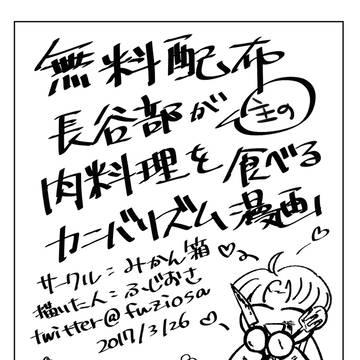 無料配布
長谷部が主の
肉料理を食べる
カニバリズム漫画!
サークル:みかん箱
描いた人:ふじおさ
twitter@fuziosa
2017/3/26